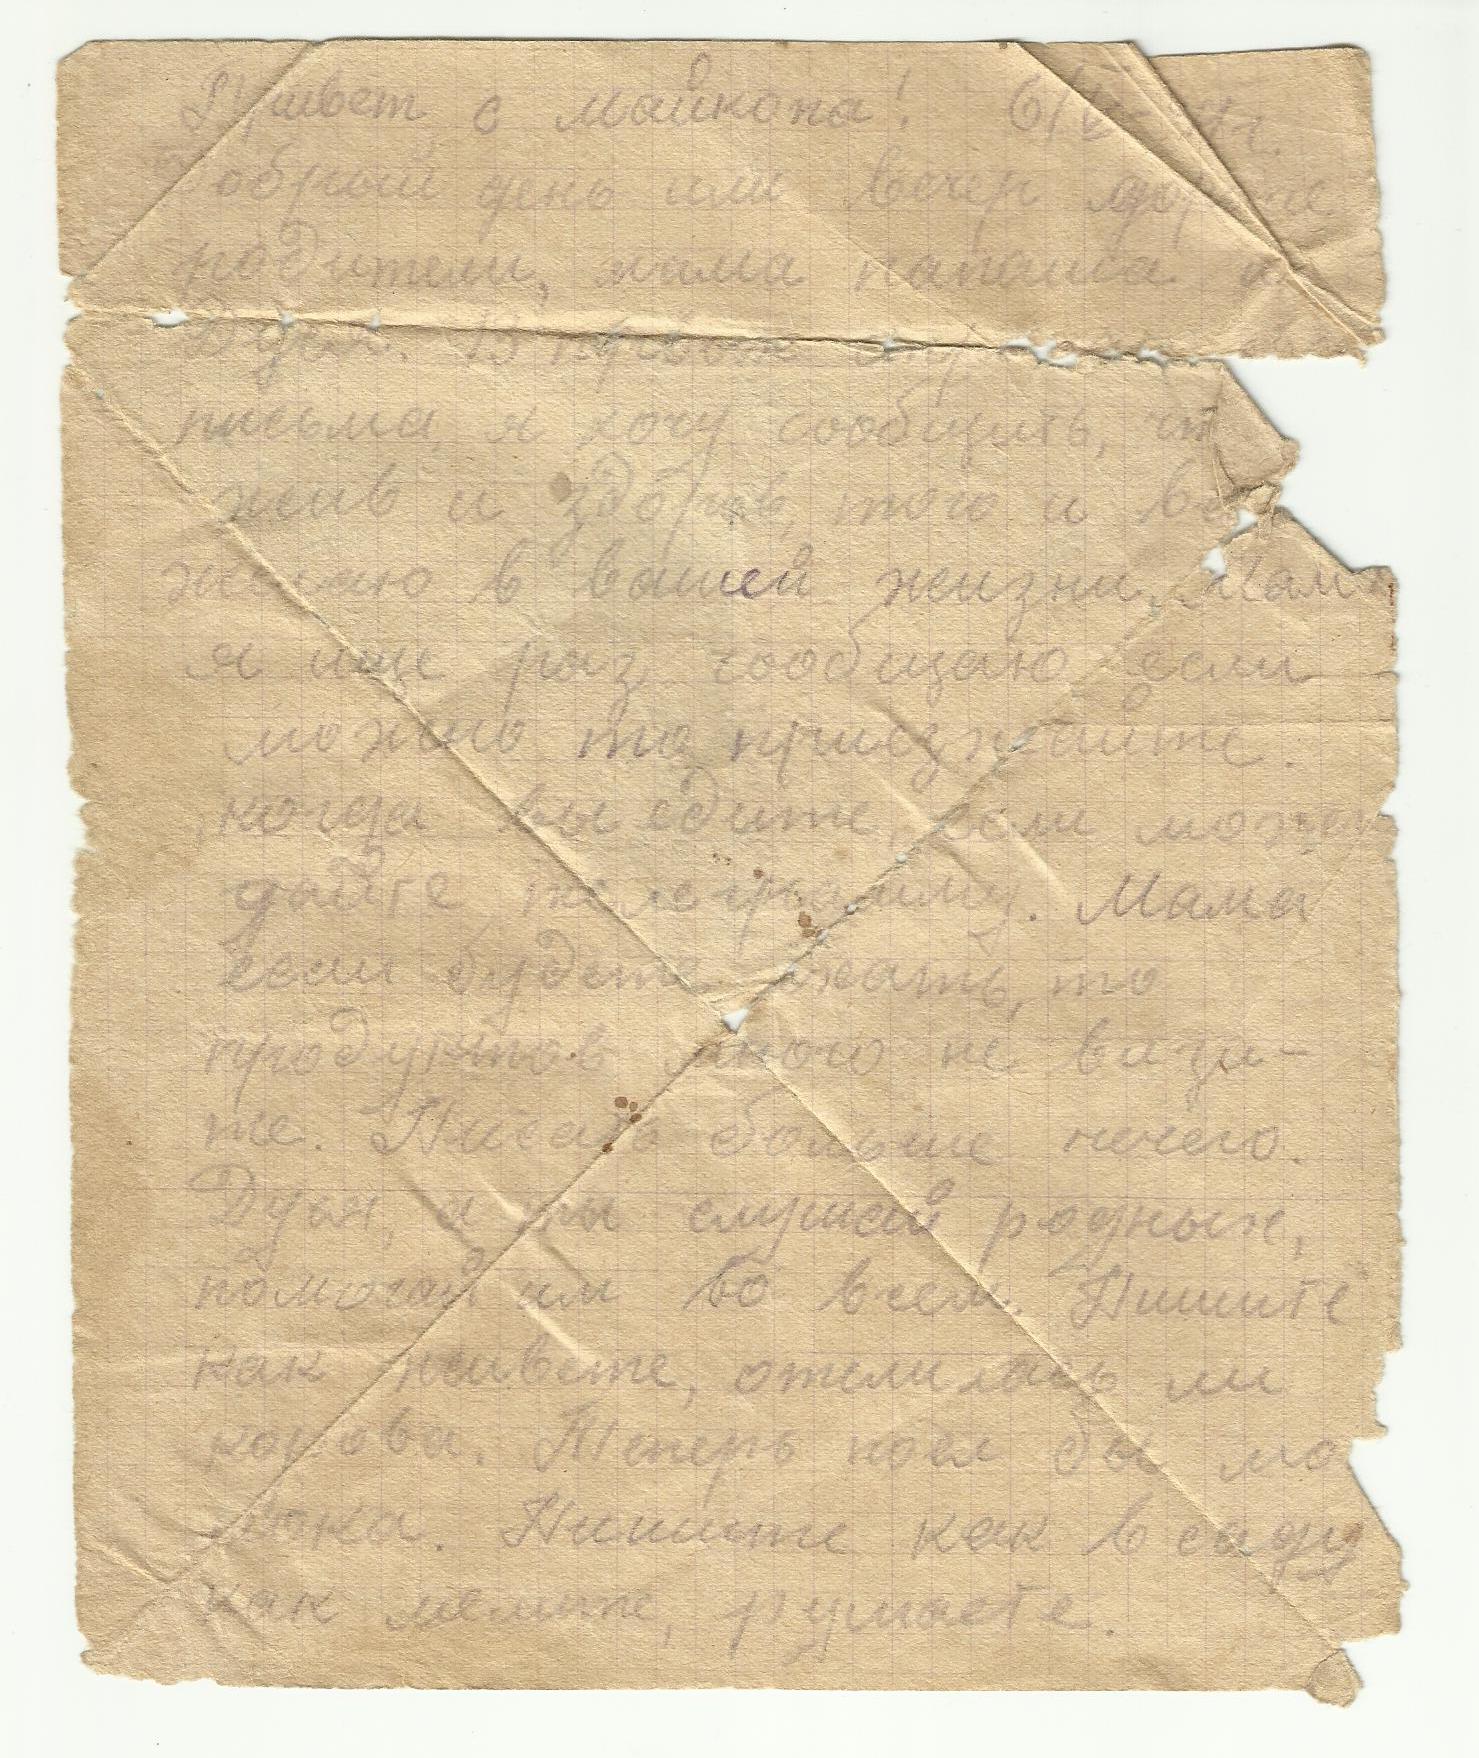 Привет с майкопа! 6/
Добрый день или вечер дорогие
родители, мама папаша и
Дуся. В первых
письма, я хочу сообщить, что
жив и здоров, того и вам
желаю в вашей жизни. Мама
я ище раз сообщаю если
можно то приезжайте.
когда выедите, если можно
дайте телеграмму. Мама
если будете ехать, то
продуктов много не вази-
те. Писать больше нечего.
Дуся, а ты слушай родных,
помогай им во всем. Пишите
как живете, отелилась ли
корова. Теперь поел бы мо
лока. Пишите как в саду
как мелите, рушаете.